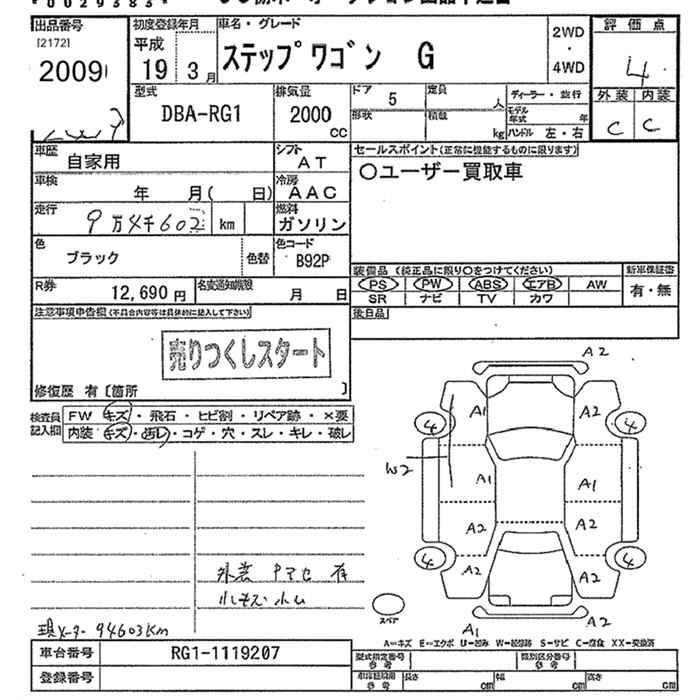 *0029383*
出品番号 初度登録年月 車名・グレード 評価点
[2172] 平成
2009 19年3月 ステップワゴン G 2WD・4WD 4
型式 排気量 ドア 定員 ディーラー・並行 外装 内装
DBA-RG1 2000 CC 5 人 モデル年式 年 C C
形状 積載 kg ハンドル 左・右
車歴 自家用 シフト AT セールスポイント(正常に機能するものに限ります)
車検 年 月( 日) 冷房 AAC ○ユーザー買取車
走行 9万4千602 km 燃料 ガソリン
色 ブラック 色替 色コード B92P
装備品 (純正品に限り○をつけてください) 新車保証書
R券 12,690円 名変通知 月 日 PS PW ABS エアB AW 有・無
SR ナビ TV カワ
注意事項申告欄(不具合内容等は具体的に記入して下さい) 後日品
売りつくしスタート
修復歴 有〔箇所 〕
検査員記入欄 FW キズ・飛石・ヒビ割・リペア跡・×要
内装 キズ・汚レ・コゲ・穴・スレ・キレ・破レ
A2
A1 A2
4 4
W2
A1 A1
A2 A2
4 4
A2 A2
外装 有
小キズ 小ム
スペア
A1 A2
現メーター 94603Km
A=キズ E=エクボ U=凹み W=補修跡 S=サビ C=腐食 XX=交換済
車台番号 RG1-1119207 型式指定番号 参考 類別区分番号 参考
登録番号 参考 長さ cm 幅 cm 高さ cm